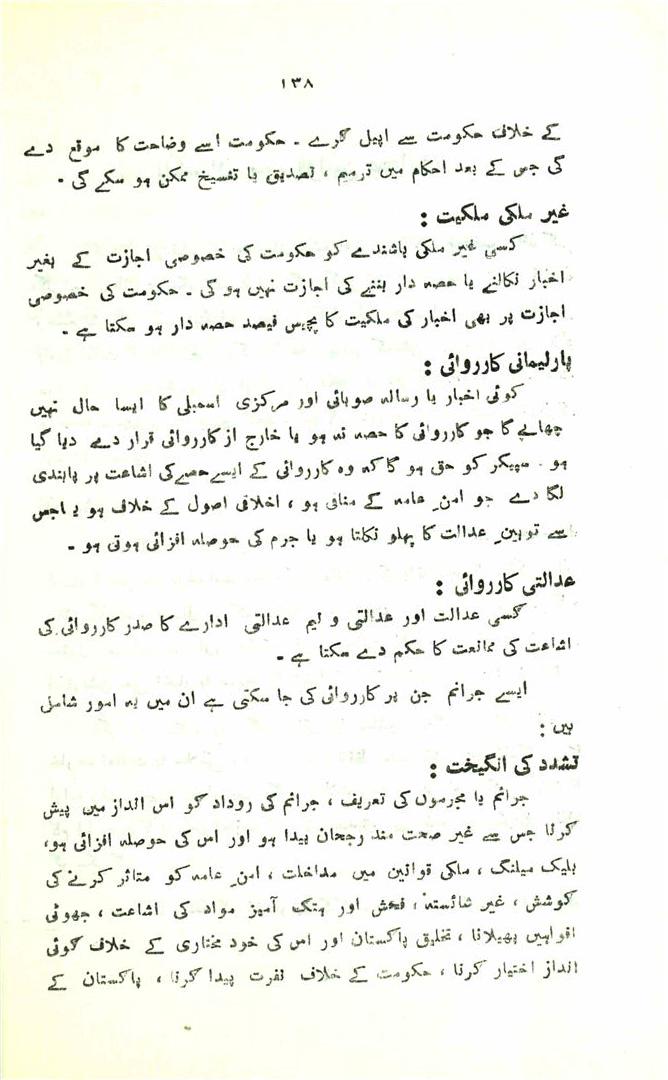 ۱۳۸
کے خلاف حکومت سے اپیل کرے ۔ حکومت اسے وضاحت کا موقع دے
گی جس کے بعد احکام میں ترمیم ، تصدیق یا تنسیخ ممکن ہو سکے گی ۔
غیر ملکی ملکیت :
کسی غیر ملکی باشندے کو حکومت کی خصوصی اجازت کے بغیر
اخبار نکالنے یا حصہ دار بننے کی اجازت نہیں ہو گی ۔ حکومت کی خصوصی
اجازت پر بھی اخبار کی ملکیت کا پچیس فیصد حصہ دار ہو سکتا ہے ۔
پارلیمانی کارروائی :
کوئی اخبار یا رسالہ صوبائی اور مرکزی اسمبلی کا ایسا حال نہیں
چھاپے گا جو کارروائی کا حصہ نہ ہو یا خارج از کارروائی قرار دے دیا گیا
ہو ۔ سپیکر کو حق ہو گا کہ وہ کارروائی کے ایسے حصے کی اشاعت پر پابندی
لگا دے جو امنِ عامہ کے منافی ہو ، اخلاقی اصول کے خلاف ہو یا جس
سے توہینِ عدالت کا پہلو نکلتا ہو یا جرم کی حوصلہ افزائی ہوتی ہو ۔
عدالتی کارروائی :
کسی عدالت اور عدالتی و نیم عدالتی ادارے کا صدر کارروائی کی
اشاعت کی ممانعت کا حکم دے سکتا ہے ۔
ایسے جرائم جن پر کارروائی کی جا سکتی ہے ان میں یہ امور شامل
ہیں :
تشدد کی انگیخت :
جرائم یا مجرموں کی تعریف ، جرائم کی روداد کو اس انداز میں پیش
کرنا جس سے غیر صحت مند رجحان پیدا ہو اور اس کی حوصلہ افزائی ہو ،
بلیک میلنگ ، ملکی قوانین میں مداخلت ، امنِ عامہ کو متاثر کرنے کی
کوشش ، غیر شائستہ ، فحش اور ہتک آمیز مواد کی اشاعت ، جھوٹی
افواہیں پھیلانا ، تخلیق پاکستان اور اس کی خود مختاری کے خلاف کوئی
انداز اختیار کرنا ، حکومت کے خلاف نفرت پیدا کرنا ، پاکستان کے